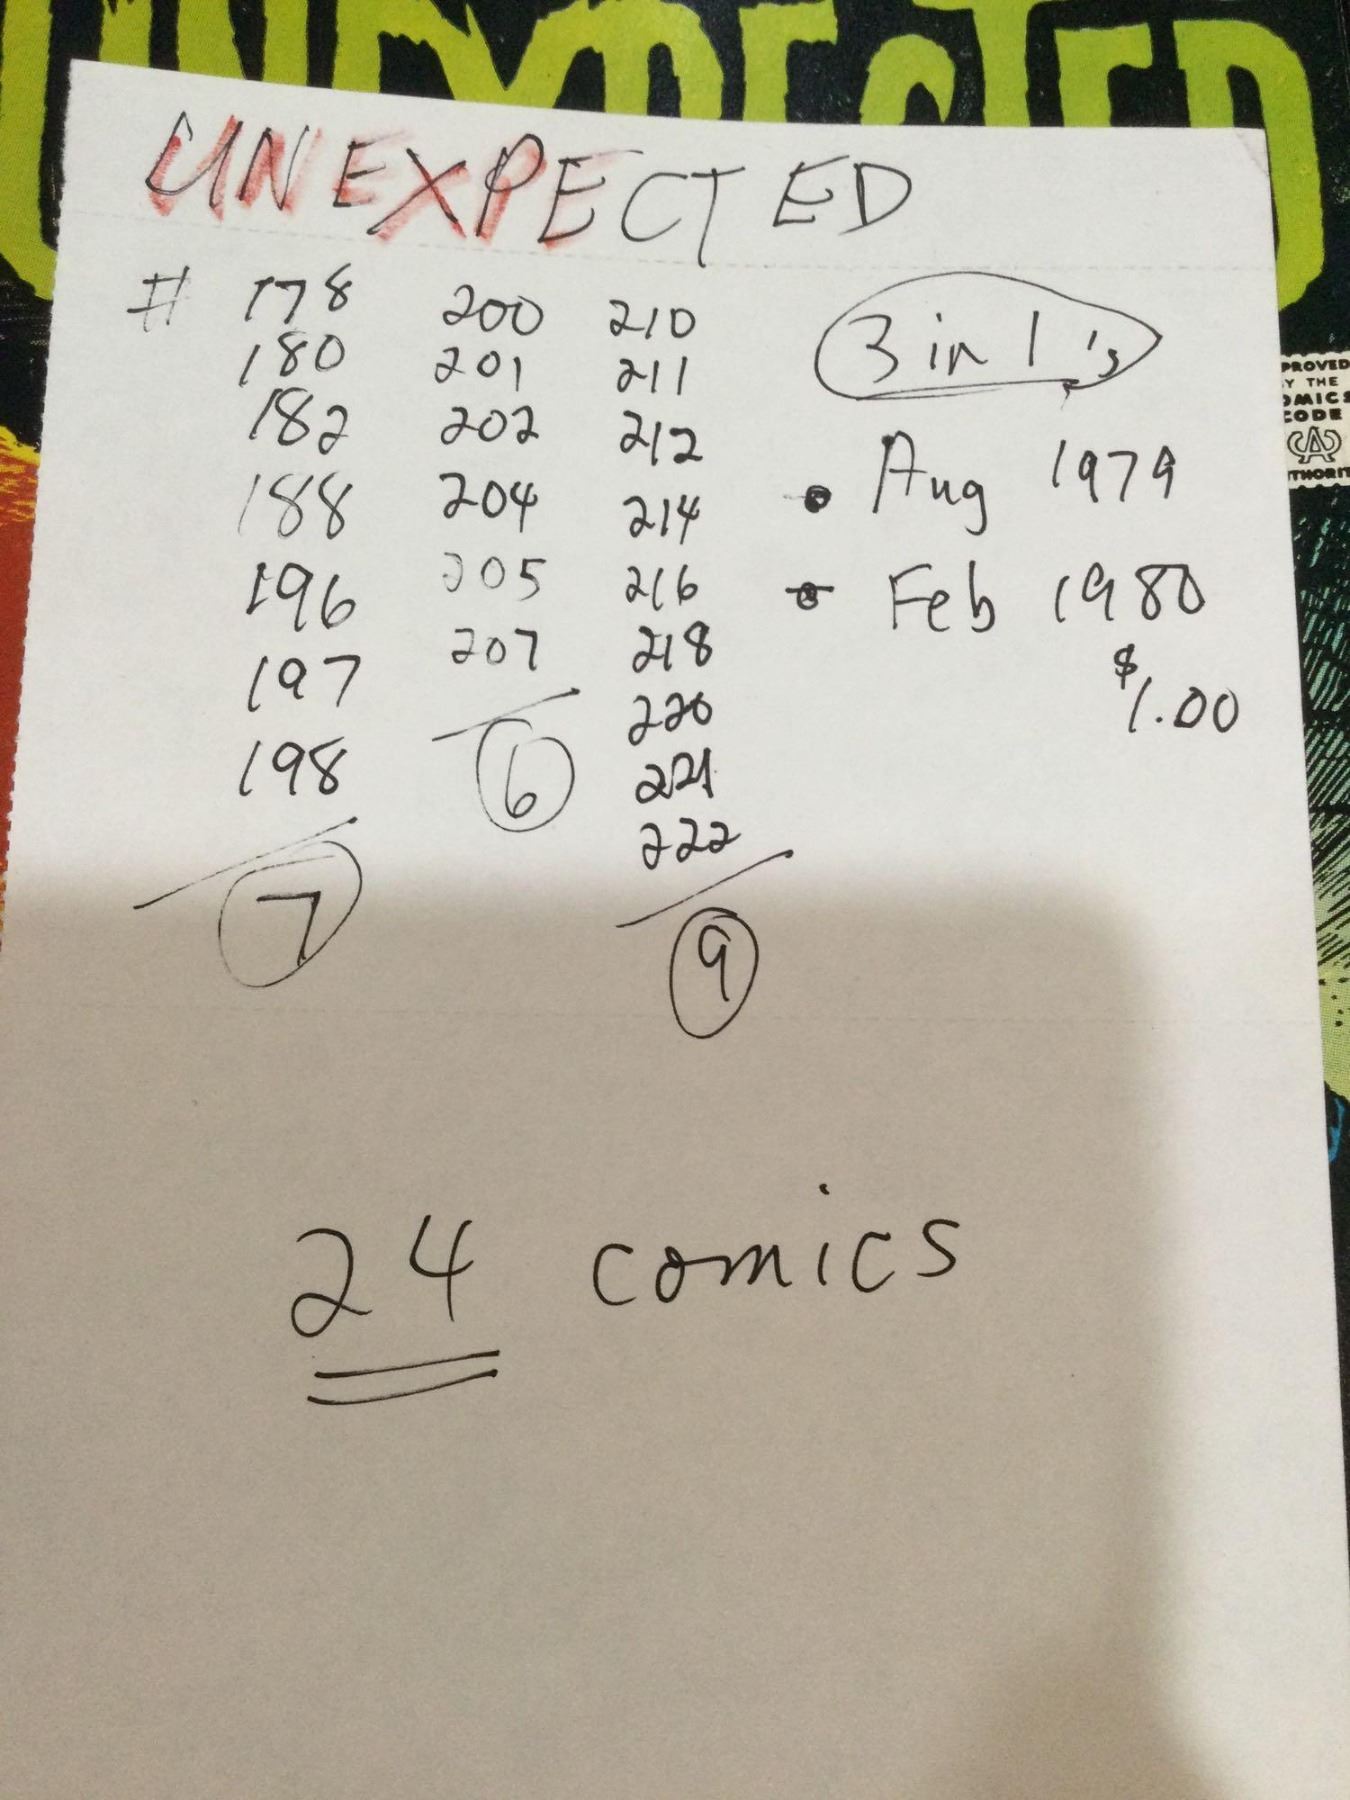 UNEXPECTED
UNEXPECTED
# 178 200 210
180 201 211
182 202 212
188 204 214
196 205 216
197 207 218
198 6 220
221
222
7
9
3 in 1's
• Aug 1979
• Feb 1980
$1.00
24 comics
PROVED
Y THE
OMICS
CODE
CA
THORIT